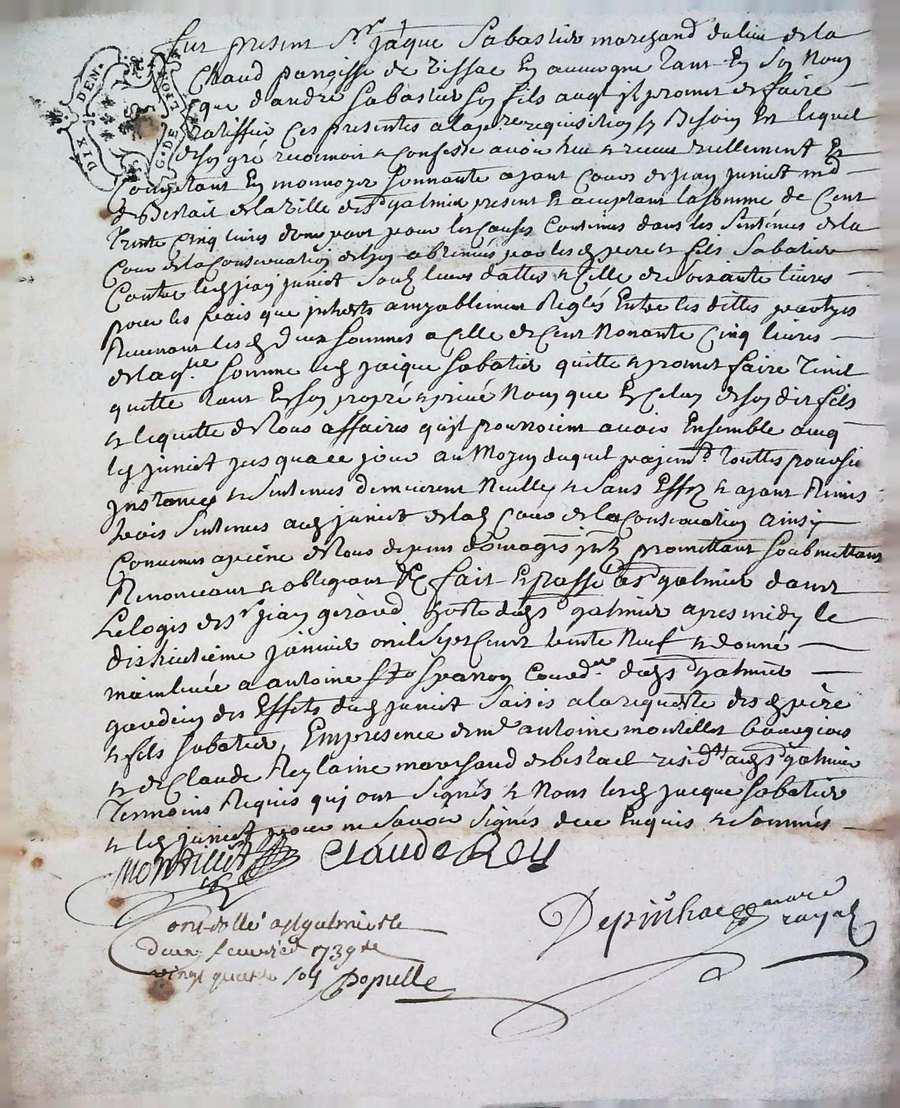 DIX DEN.
G. DE LION
Fut present Sr jaque Sabatier marchand du lieu de la
Chaud paroisse de Tissac En auvergne tant En son Nom
que d'andré Sabatier son fils auquel promet de faire
Ratiffier Ces presentes a la pre requisition sy Besoin Est lequel
de son gré reconnoit & confesse avoir eu & receu reellement &
Comptant En monnoyes sonnante ayant Cours de jean juniet md
de Bestail de la ville de St galmier present & aceptant la somme de Cent
Trente Cinq livres d'une part pour les Causes Contenues dans les Sentences de la
Cour de la Conservation de lyon obtenues par lesd pere & fils Sabatier
Contre led jean juniet Soub leurs dattes & Celle de soixante livres
pour les frais que interets amyablement Reglés Entre les dittes partyes
Revenant lesd deux sommes a Celle de Cent Nonante Cinq livres
de laqlle somme led jaique Sabatier quitte & promet faire tenir
quitte tant En son propre & privé Nom que En Celuy de son dit fils
& le quitte de tous affaires quils pourroient avoir Ensemble avec
led juniet jusqua ce jour au Moyen duquel payemt touttes poursuittes
instances & Sentences demeurent Nulles & Sans Effet & ayant Remis
trois Sentences aud juniet de lad Cour de la Conservation ainsy
Convenu a peine de tous depens domages promettant soubmettant
Renonceant & obligeant &c fait & passé a St galmier dans
le logis de Sr jean giraud hoste dud St galmier apres midy le
dishuitieme janvier mil sept Cent trente Neuf & donné
mainlevée a antoine dud St galmier
gardien des Effets dud juniet Saisis a la requeste desd père
& fils Sabatier, En presence de mr antoine montellet bourgeois
& de Claude Rey laine marchand de bestail residt aud St galmier
Temoins Requis qui ont signés & Nons lesd jacque Sabatier
& led juniet pour ne savoir signés de ce Enquis & sommés
Montellet Claude Rey
Depinhac nore
royal
Controllé a St galmier le
deux fevrier 1739 Reçu
vingt quatre sols Populle